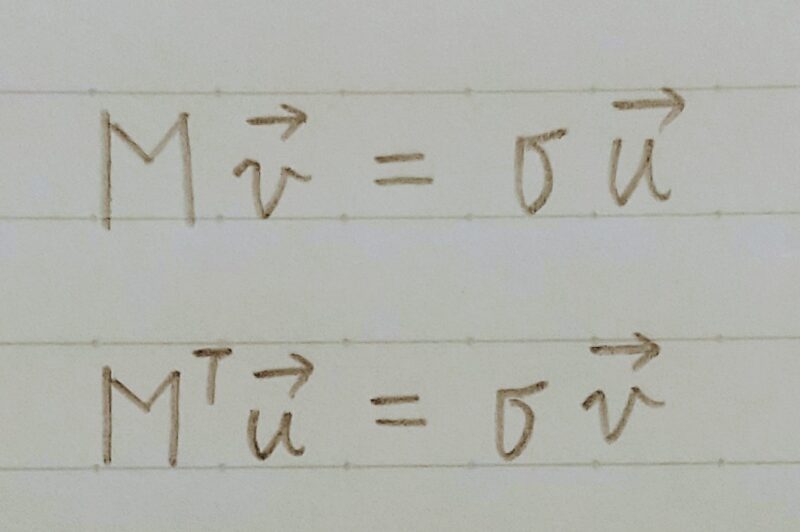 M v⃗ = σ u⃗
Mᵀ u⃗ = σ v⃗